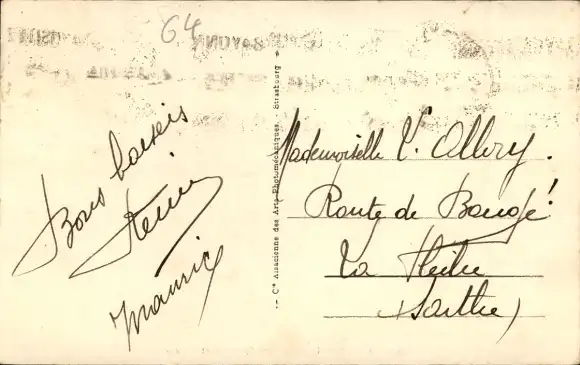 64
Bons baisers
Maurice
— Cie Alsacienne des Arts Photomécaniques. - Strasbourg —
Mademoiselle Y. Allory.
Route de Baugé
La Flèche
(Sarthe)